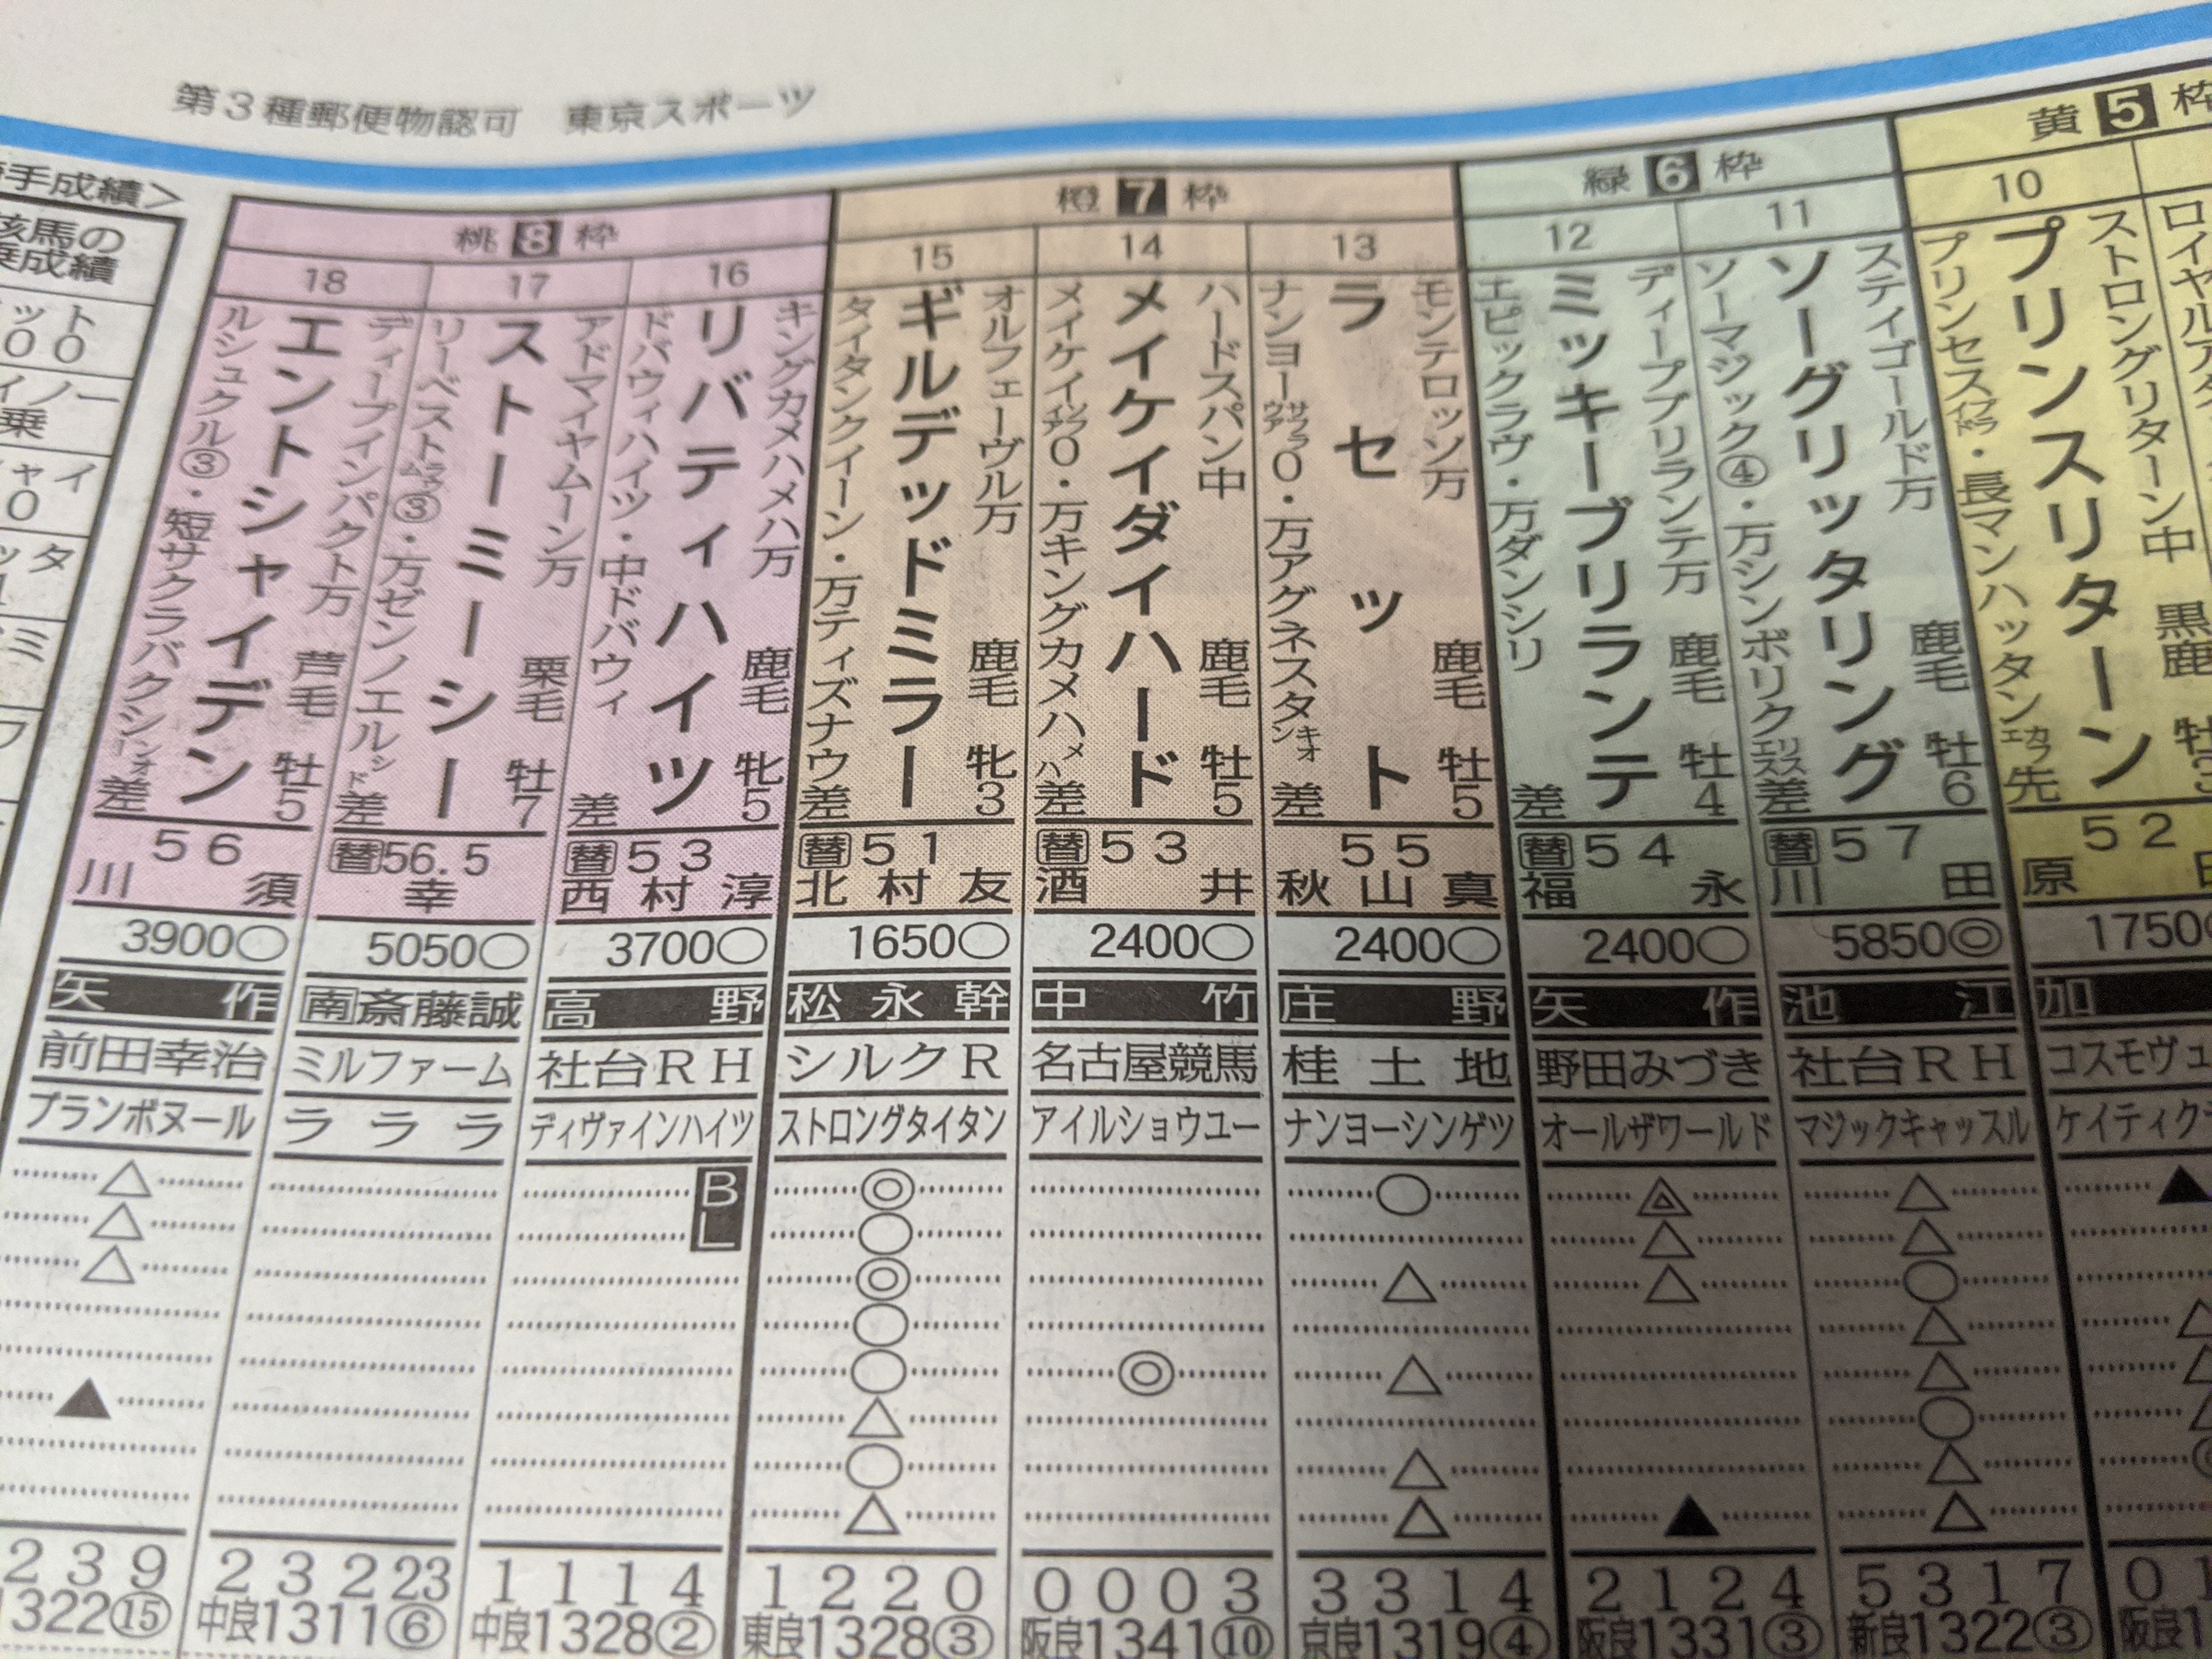 第3種郵便物認可 東京スポーツ
黄5枠
10
ストロングリターン中 黒鹿
プリンスリターン
52
1750
加
コスモヴュ
ケイティク
▲
緑6枠
11
スティゴールド万 鹿毛 牡6
ソーグリッタリング
ソーマジック④・万シンボリクリスエス差
替57
川田
5850◎
池江
社台RH
マジックキャッスル
△
△
○
△
△
○
△
△
5 3 1 7
新良1322③
12
ディープブリランテ万 鹿毛 牡4
ミッキーブリランテ
エピックラヴ・万ダンシリ 差
替54
福永
2400○
矢作
野田みづき
オールザワールド
△
△
▲
2 1 2 4
阪良1331③
橙7枠
13
モンテロッソ万 鹿毛 牡5
ラセット
55
秋山真
2400○
庄野
桂土地
ナンヨーシンゲツ
○
△
△
△
△
3 3 1 4
京良1319④
14
ハードスパン中 鹿毛 牡5
メイケイダイハード
替53
酒井
2400○
中竹
名古屋競馬
アイルショウユー
◎
0 0 0 3
阪良1341⑩
15
オルフェーヴル万 鹿毛 牝3
ギルデッドミラー
タイタンクイーン・万ティズナウ差
替51
北村友
1650○
松永幹
シルクR
ストロングタイタン
◎
○
◎
○
○
△
○
△
1 2 2 0
東良1328③
桃8枠
16
キングカメハメハ万 鹿毛 牝5
リバティハイツ
ドバウィハイツ・中ドバウィ 差
替53
西村淳
3700○
高野
社台RH
ディヴァインハイツ
BL
1 1 1 4
中良1328②
17
アドマイヤムーン万 栗毛 牡7
ストーミーシー
リーベストラウム③・万ゼンノエルシド差
替56.5
幸
5050○
南斎藤誠
ミルファーム
ラララ
2 3 2 23
中良1311⑥
18
ディープインパクト万 芦毛 牡5
エントシャイデン
ルシュクル③・短サクラバクシンオー差
56
川須
3900○
矢作
前田幸治
ブランボヌール
△
△
△
▲
2 3 9
1322⑮